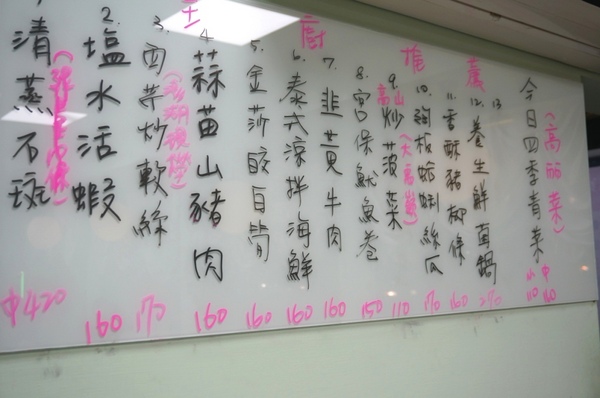 主廚推薦
清蒸石斑
中420
2. 塩水活蝦
160
3. 西芹炒軟絲
170
4. 蒜苗山豬肉
160
5. 金莎皎白筍
160
6. 泰式涼拌海鮮
160
7. 韭黄牛肉
160
8. 宮保魷魚卷
150
9. 高山炒菠菜
110
10. 蛤蜊絲瓜
170
11. 香酥豬柳條
160
12. 生鮮鍋
13 今日四季青菜
(高丽菜)
小110
中160